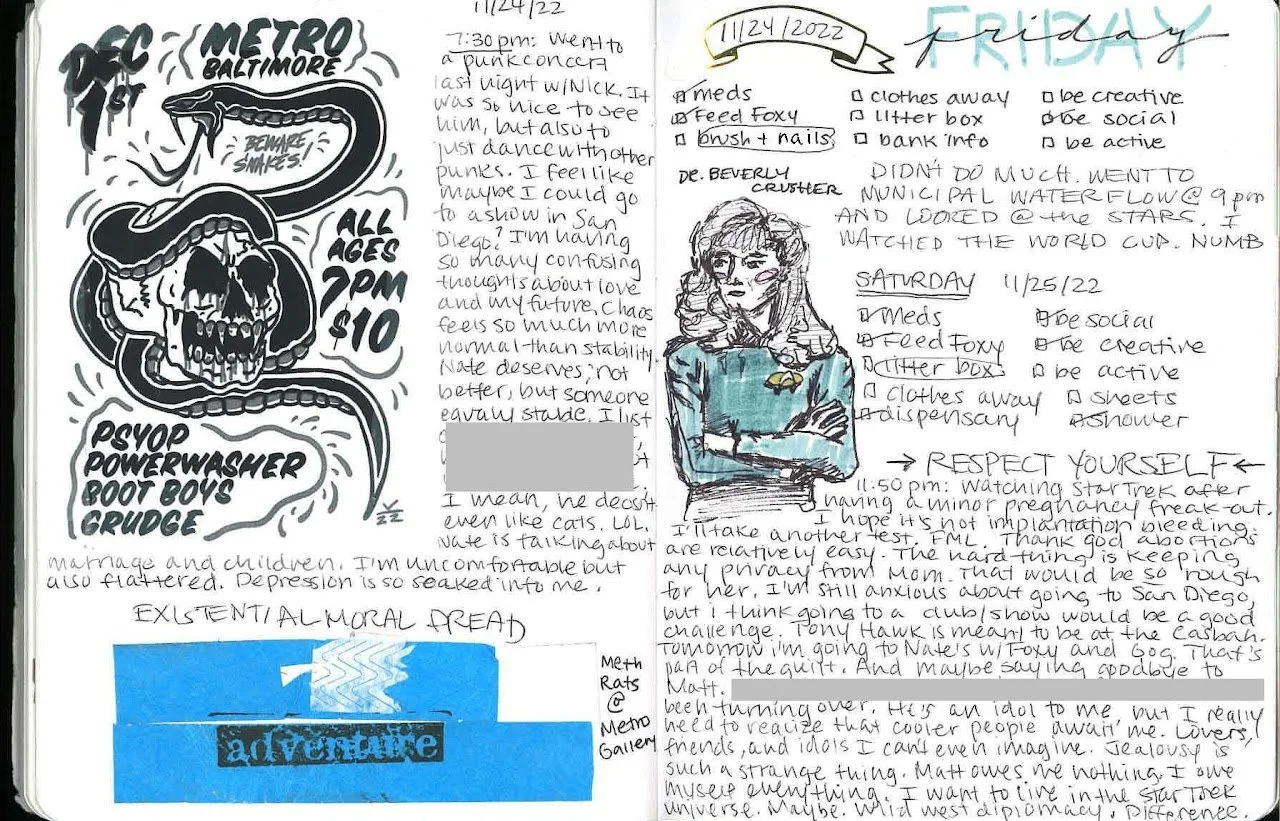 DEC
1ST
METRO
BALTIMORE
BEWARE
SNAKES!
ALL
AGES
7PM
$10
PSYOP
POWERWASHER
BOOT BOYS
GRUDGE
22
11/24/22
7:30pm: Went to
a punk concert
last night w/Nick. It
was so nice to see
him, but also to
just dance with other
punks. I feel like
maybe I could go
to a show in San
Diego? I'm having
so many confusing
thoughts about love
and my future. Chaos
feels so much more
normal than stability.
Nate deserves, not
better, but someone
equally stable. I just
I mean, he doesn't
even like cats. LOL.
Nate is talking about
marriage and children. I'm uncomfortable but
also flattered. Depression is so soaked into me.
EXISTENTIAL MORAL DREAD
adventure
Meth
Rats
@
Metro
Gallery
11/24/2022
FRIDAY
friday
meds
Feed Foxy
brush + nails
clothes away
litter box
bank info
be creative
be social
be active
DR. BEVERLY
CRUSHER
DIDN'T DO MUCH. WENT TO
MUNICIPAL WATERFLOW @ 9pm
AND LOOKED @ the STARS. I
WATCHED THE WORLD CUP. NUMB
SATURDAY 11/25/22
Meds
Feed Foxy
litter box
clothes away
dispensary
be social
be creative
be active
sheets
shower
→ RESPECT YOURSELF ←
11:50 pm: Watching Star Trek after
having a minor pregnancy freak-out.
I hope it's not implantation bleeding.
I'll take another test. FML. Thank god abortions
are relatively easy. The hard thing is keeping
any privacy from Mom. That would be so rough
for her. I'm still anxious about going to San Diego,
but i think going to a club/show would be a good
challenge. Tony Hawk is meant to be at the Casbah.
Tomorrow i'm going to Nate's w/ Foxy and Gog. That's
part of the guilt. And maybe saying goodbye to
Matt.
been turning over. He's an idol to me, but I really
need to realize that cooler people await me. Lovers,
friends, and idols I can't even imagine. Jealousy is
such a strange thing. Matt owes me nothing. I owe
myself everything. I want to live in the Star Trek
universe. Maybe. Wild west diplomacy. Difference.